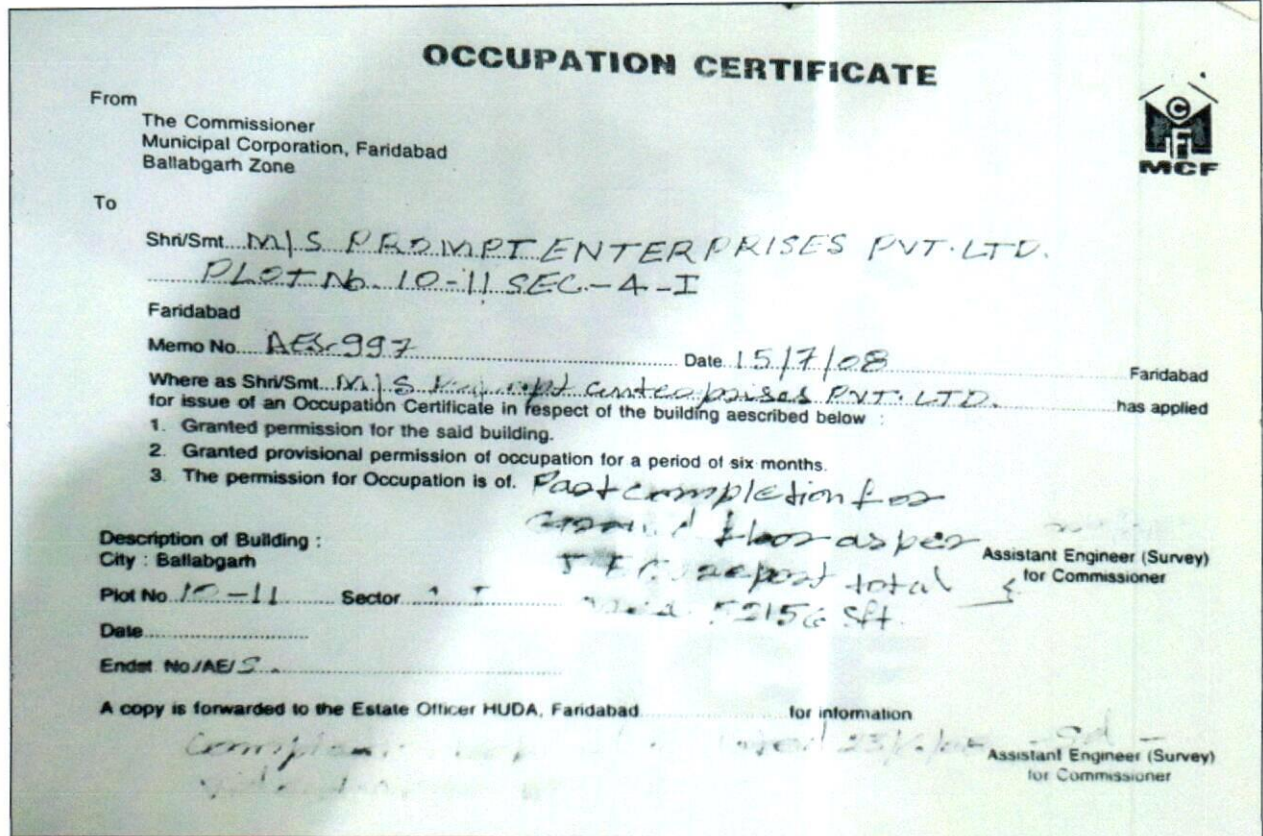 OCCUPATION CERTIFICATE
From
The Commissioner
Municipal Corporation, Faridabad
Ballabgarh Zone
MCF
To
Shri/Smt M/S PROMPT ENTERPRISES PVT. LTD.
PLOT No. 10-11 SEC-4-I
Faridabad
Memo No. AES-997 Date 15/7/08 Faridabad
Where as Shri/Smt M/S Prompt enterprises PVT. LTD. has applied
for issue of an Occupation Certificate in respect of the building aescribed below :
1. Granted permission for the said building.
2. Granted provisional permission of occupation for a period of six months.
3. The permission for Occupation is of. Part completion for
floor as per
Description of Building :
City : Ballabgarh
report total
Assistant Engineer (Survey)
for Commissioner
Plot No 10-11 Sector
52156 Sft.
Date
Endst No/AE/S.
A copy is forwarded to the Estate Officer HUDA, Faridabad for information
Assistant Engineer (Survey)
for Commissioner